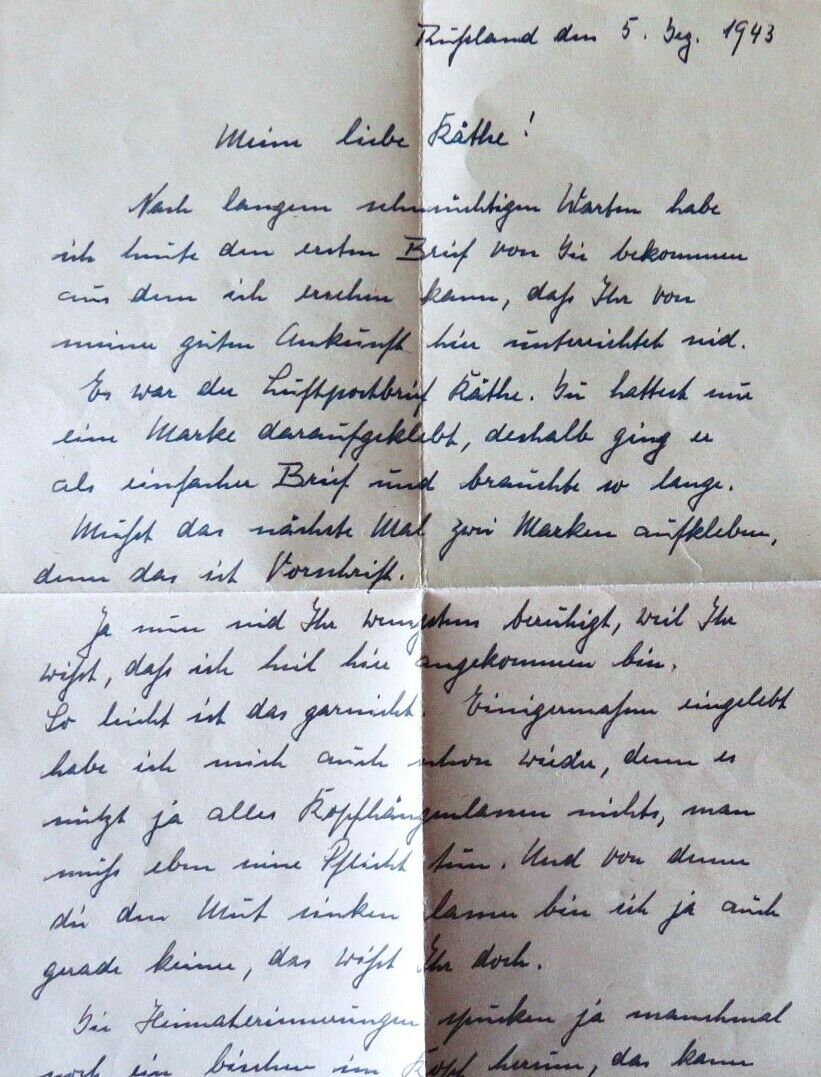 Rußland den 5. Dez. 1943
Meine liebe Käthe!
Nach langem sehnsüchtigen Warten habe
ich heute den ersten Brief von Dir bekommen
aus dem ich ersehen kann, daß Ihr von
meiner guten Ankunft hier unterrichtet seid.
Es war der Luftpostbrief Käthe. Du hattest nur
eine Marke daraufgeklebt, deshalb ging er
als einfacher Brief und brauchte so lange.
Mußt das nächste Mal zwei Marken aufkleben,
denn das ist Vorschrift.
Ja nun seid Ihr wenigstens beruhigt, weil Ihr
wißt, daß ich heil hier angekommen bin.
So leicht ist das garnicht. Einigermaßen eingelebt
habe ich mich auch schon wieder, denn es
nützt ja alles Kopfhängenlassen nichts, man
muß eben seine Pflicht tun. Und von denen
die den Mut sinken lassen bin ich ja auch
gerade keiner, das wißt Ihr doch.
Die Heimaterinnerungen spuken ja manchmal
noch ein bischen im Kopf herum, das kann